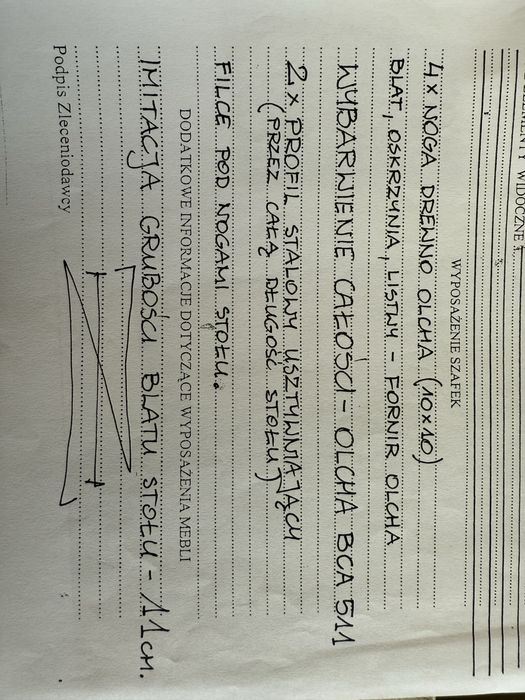 WIDOCZNE
WYPOSAŻENIE SZAFEK
4x NOGA DREWNO OLCHA (10x10)
BLAT, OSKRZYNIA, LISTWY - FORNIR OLCHA
WYBARWIENIE CAŁOŚCI - OLCHA BCA 511
2x PROFIL STALOWY USZTYWNIAJĄCY
(PRZEZ CAŁĄ DŁUGOŚĆ STOŁU)
FILCE POD NOGAMI STOŁU.
DODATKOWE INFORMACJE DOTYCZĄCE WYPOSAŻENIA MEBLI
IMITACJA GRUBOŚCI BLATU STOŁU - 11cm.
Podpis Zleceniodawcy